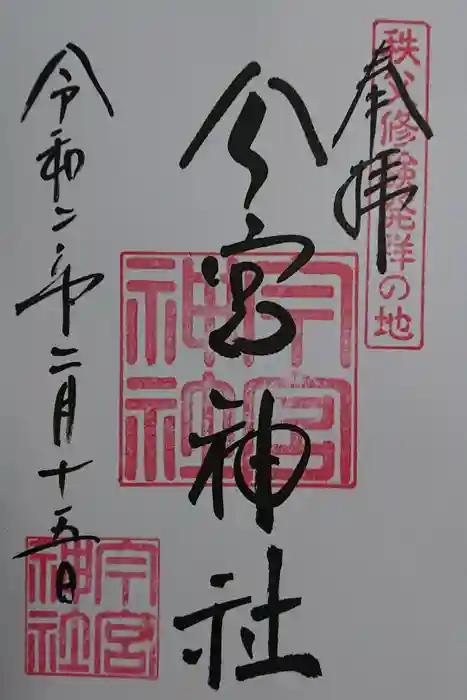 奉拝
秩父修験発祥の地
今宮神社
今宮神社
令和二年二月十五日
今宮神社